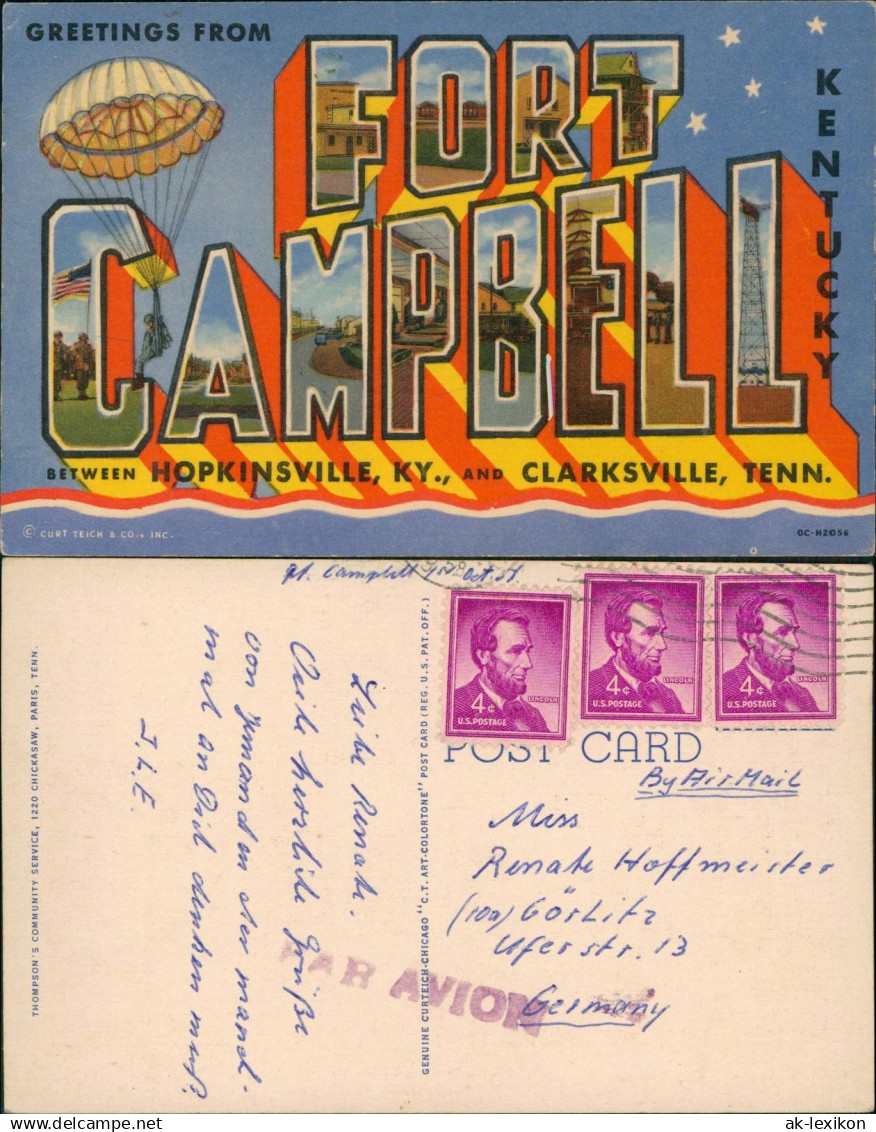 GREETINGS FROM
FORT
CAMPBELL
KENTUCKY
BETWEEN HOPKINSVILLE, KY., AND CLARKSVILLE, TENN.
© CURT TEICH & CO., INC.
OC-H2056
Ft. Campbell 1st Oct.
Liebe Renate.
Viele herzliche Grüße
von Jemandem der manch-
mal an Dich denken muß.
THOMPSON'S COMMUNITY SERVICE, 1220 CHICKASAW, PARIS, TENN.
GENUINE CURTEICH-CHICAGO "C.T. ART-COLORTONE" POST CARD (REG. U.S. PAT. OFF.)
4¢ LINCOLN
U.S. POSTAGE
4¢ LINCOLN
U.S. POSTAGE
4¢ LINCOLN
U.S. POSTAGE
POST CARD
By Air Mail
Miss
Renate Hoffmeister
(10a) Görlitz
Uferstr. 13
Germany
PAR AVION
ak-lexikon